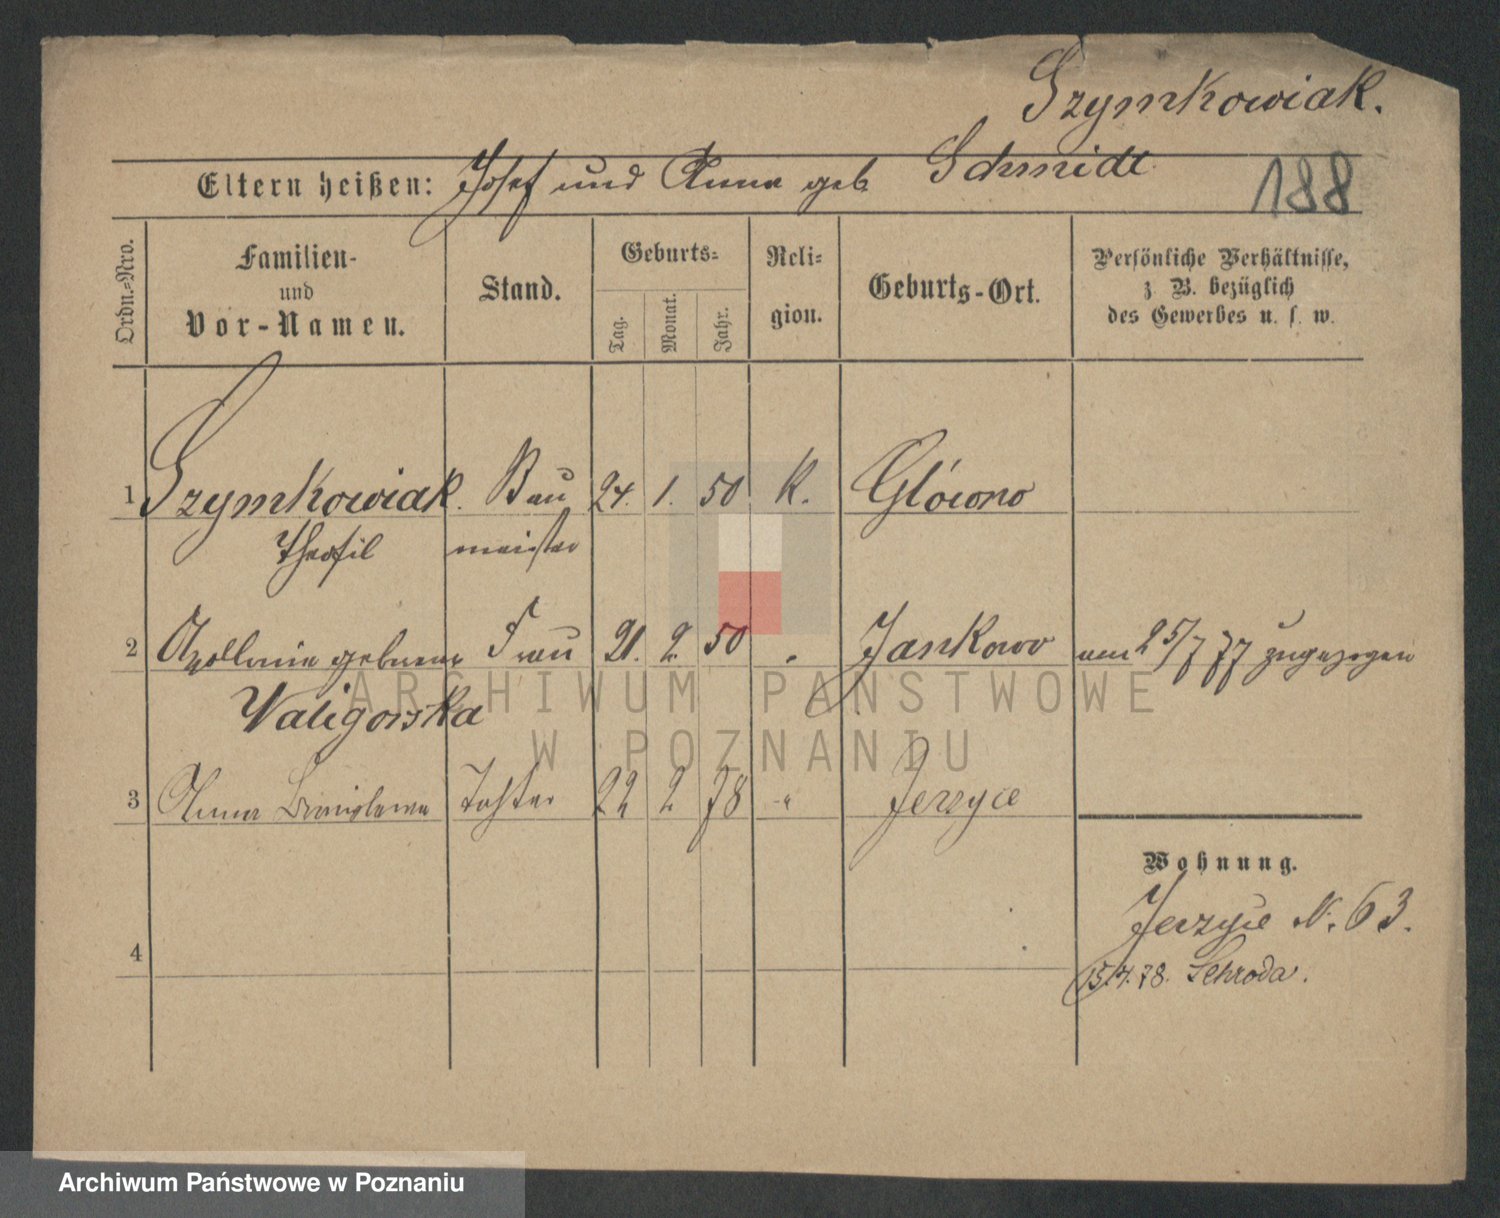 Szymkowiak.
Eltern heißen: Josef und Anna geb. Schmidt
188
Ordn.-Nro.
Familien- und Vor-Namen.
Stand.
Geburts-
Tag.
Monat.
Jahr.
Reli-gion.
Geburts-Ort.
Persönliche Verhältnisse,
z. B. bezüglich
des Gewerbes u. s. w.
1 Szymkowiak. Bau 24. 1. 50 K. Glówno
Theofil meister
2 Apollonia geborene Frau 21. 2. 50 " Jankowo am 25/7 77 zugezogen
Waligorska
3 Anna Tochter 22 2 78 " Jerzyce
4
Wohnung.
Jerzyce N. 63.
15/4. 78. Schroda.
ARCHIWUM PAŃSTWOWE
W POZNANIU
Archiwum Państwowe w Poznaniu